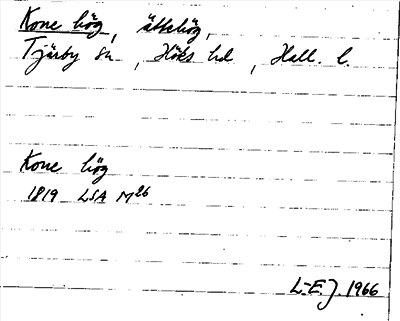 Kone hög, ättehög,
Tjärby sn, Höks hd, Hall. l.
Kone hög
1819 LSA M26
L-E.J. 1966